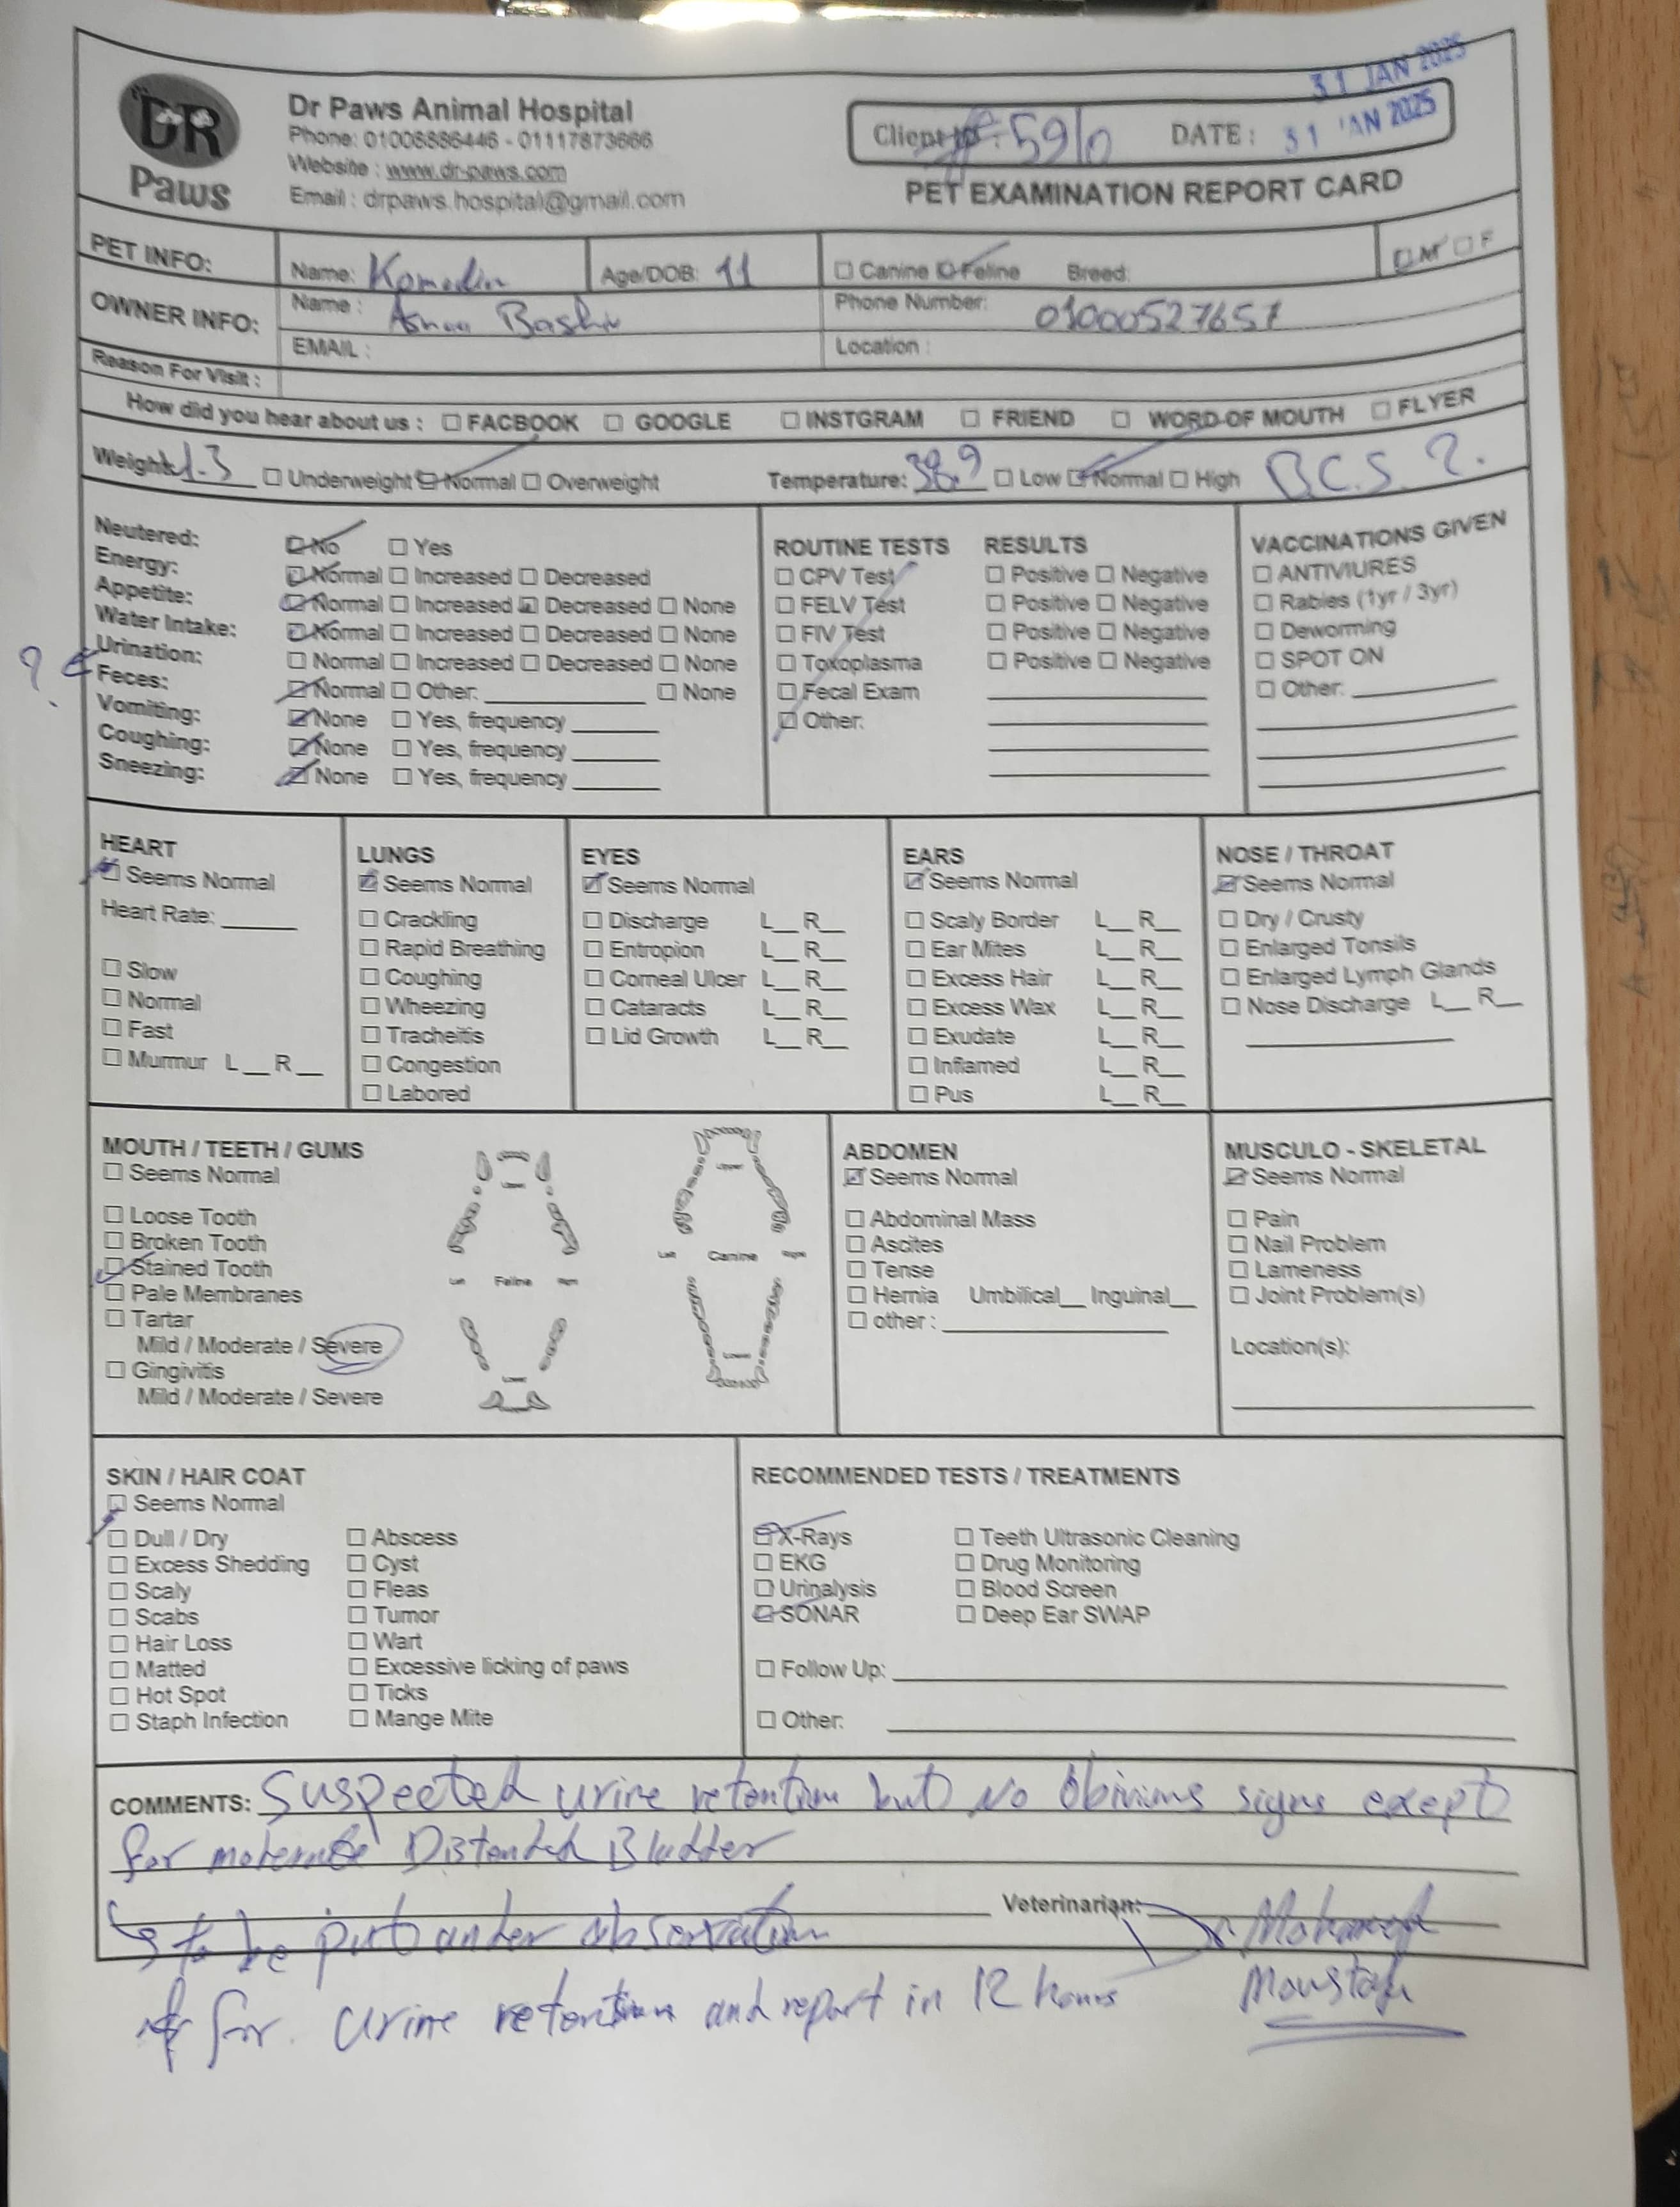 31 JAN 2025
DR
Paws
Dr Paws Animal Hospital
Phone: 01006886446 - 01117873666
Website : www.dr-paws.com
Email : drpaws.hospital@gmail.com
Client 5910 DATE : 31 JAN 2025
PET EXAMINATION REPORT CARD
PET INFO: Name: Age/DOB: 11 ☐ Canine ☑ Feline Breed: ☑ M ☐ F
OWNER INFO: Name : Bashir Phone Number: 01000527657
EMAIL : Location :
Reason For Visit :
How did you hear about us : ☐ FACBOOK ☐ GOOGLE ☐ INSTGRAM ☐ FRIEND ☐ WORD OF MOUTH ☐ FLYER
Weight: ☐ Underweight ☑ Normal ☐ Overweight Temperature: 38.9 ☐ Low ☑ Normal ☐ High B.C.S ?
Neutered: ☑ No ☐ Yes
Energy: ☑ Normal ☐ Increased ☐ Decreased
Appetite: ☑ Normal ☐ Increased ☑ Decreased ☐ None
Water Intake: ☑ Normal ☐ Increased ☐ Decreased ☐ None
? Urination: ☐ Normal ☐ Increased ☐ Decreased ☐ None
Feces: ☑ Normal ☐ Other: ☐ None
Vomiting: ☑ None ☐ Yes, frequency
Coughing: ☑ None ☐ Yes, frequency
Sneezing: ☑ None ☐ Yes, frequency
ROUTINE TESTS RESULTS
☐ CPV Test ☐ Positive ☐ Negative
☐ FELV Test ☐ Positive ☐ Negative
☐ FIV Test ☐ Positive ☐ Negative
☐ Toxoplasma ☐ Positive ☐ Negative
☐ Fecal Exam
☐ Other:
VACCINATIONS GIVEN
☐ ANTIVIURES
☐ Rabies (1yr / 3yr)
☐ Deworming
☐ SPOT ON
☐ Other:
HEART
☑ Seems Normal
Heart Rate:
☐ Slow
☐ Normal
☐ Fast
☐ Murmur L__ R__
LUNGS
☑ Seems Normal
☐ Crackling
☐ Rapid Breathing
☐ Coughing
☐ Wheezing
☐ Tracheitis
☐ Congestion
☐ Labored
EYES
☑ Seems Normal
☐ Discharge L__ R__
☐ Entropion L__ R__
☐ Corneal Ulcer L__ R__
☐ Cataracts L__ R__
☐ Lid Growth L__ R__
EARS
☑ Seems Normal
☐ Scaly Border L__ R__
☐ Ear Mites L__ R__
☐ Excess Hair L__ R__
☐ Excess Wax L__ R__
☐ Exudate L__ R__
☐ Inflamed L__ R__
☐ Pus L__ R__
NOSE / THROAT
☑ Seems Normal
☐ Dry / Crusty
☐ Enlarged Tonsils
☐ Enlarged Lymph Glands
☐ Nose Discharge L__ R__
MOUTH / TEETH / GUMS
☐ Seems Normal
☐ Loose Tooth
☐ Broken Tooth
☑ Stained Tooth
☐ Pale Membranes
☐ Tartar
Mild / Moderate / Severe
☐ Gingivitis
Mild / Moderate / Severe
Upper
Left Feline Right
Lower
Upper
Left Canine Right
Lower
ABDOMEN
☑ Seems Normal
☐ Abdominal Mass
☐ Ascites
☐ Tense
☐ Hernia Umbilical__ Inguinal__
☐ other :
MUSCULO - SKELETAL
☑ Seems Normal
☐ Pain
☐ Nail Problem
☐ Lameness
☐ Joint Problem(s)
Location(s):
SKIN / HAIR COAT
☑ Seems Normal
☐ Dull / Dry
☐ Excess Shedding
☐ Scaly
☐ Scabs
☐ Hair Loss
☐ Matted
☐ Hot Spot
☐ Staph Infection
☐ Abscess
☐ Cyst
☐ Fleas
☐ Tumor
☐ Wart
☐ Excessive licking of paws
☐ Ticks
☐ Mange Mite
RECOMMENDED TESTS / TREATMENTS
☑ X-Rays
☐ EKG
☐ Urinalysis
☑ SONAR
☐ Teeth Ultrasonic Cleaning
☐ Drug Monitoring
☐ Blood Screen
☐ Deep Ear SWAP
☐ Follow Up:
☐ Other:
COMMENTS: Suspected urine retention but No Obivious signs exept
for moderate Distended Bladder
Veterinarian: Dr. Mohamed
↳ to be put under observation
Moustafa
for urine retention and report in 12 hours